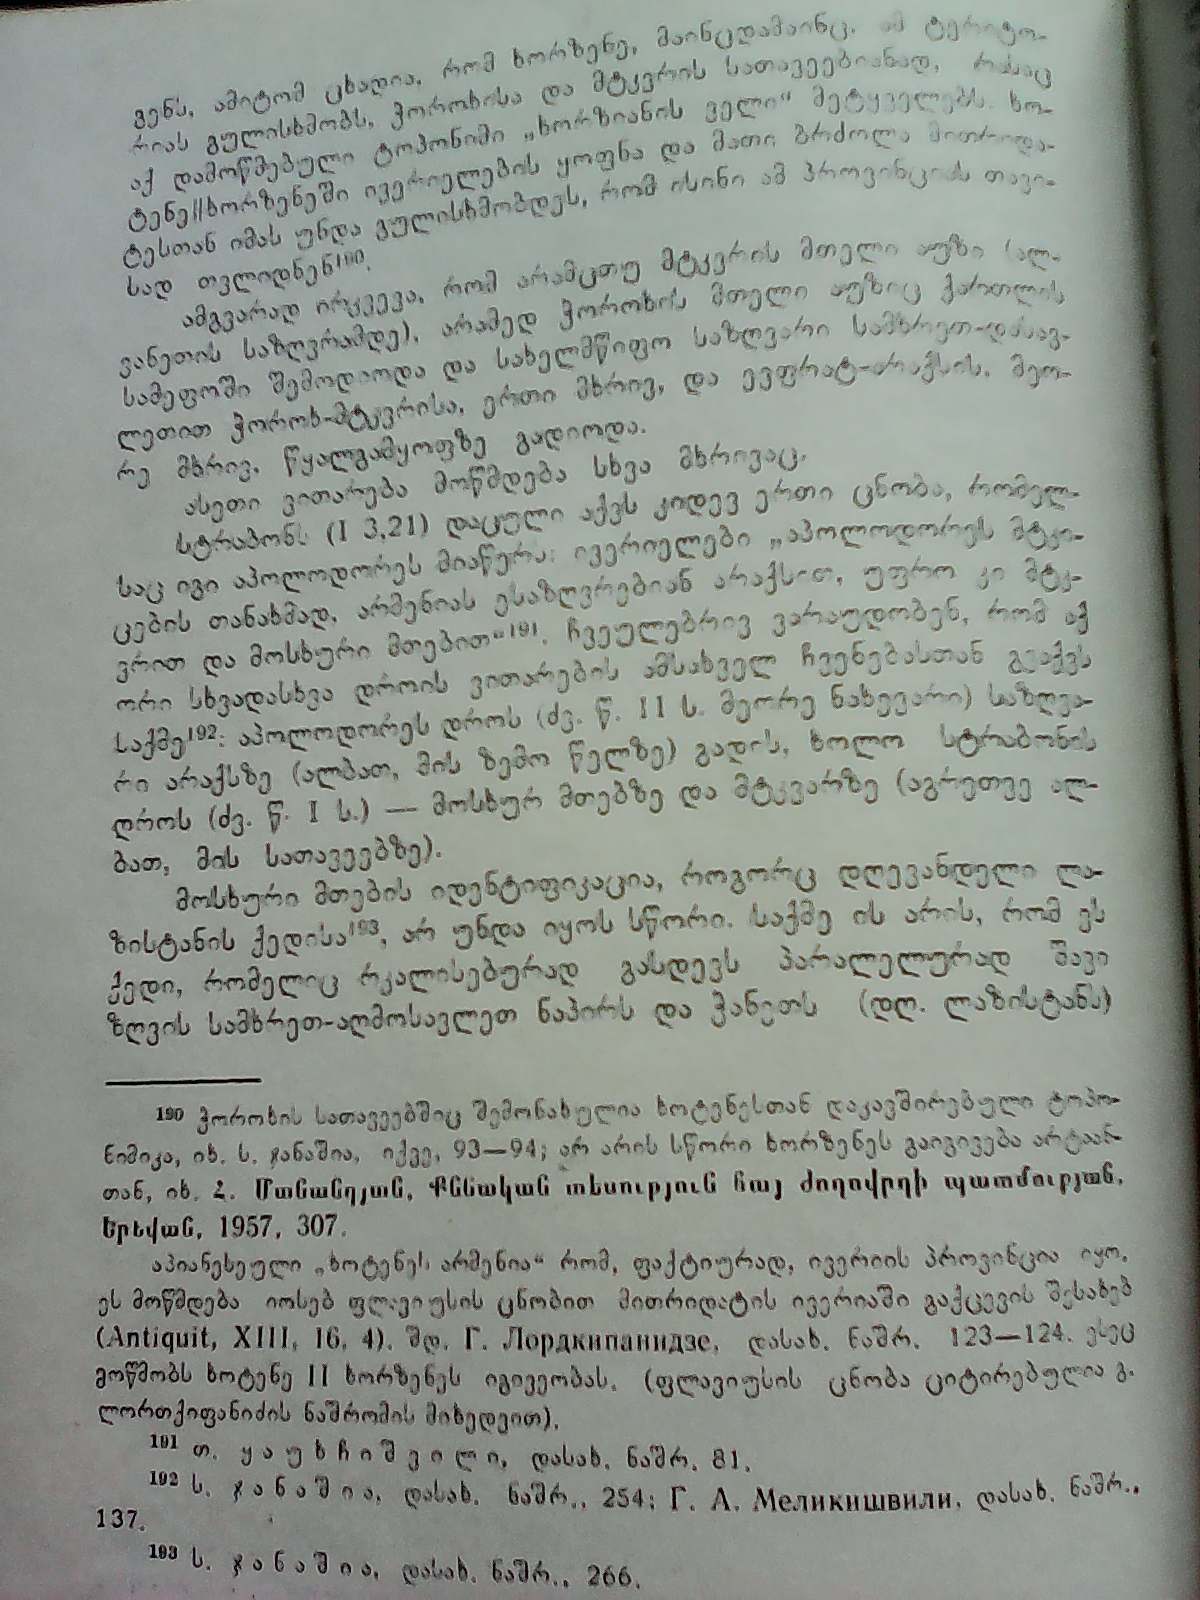 ვენს, ამიტომ ცხადია, რომ ხორზენე, მაინცდამაინც, ამ ტერიტო-
რიას გულისხმობს, ჭოროხისა და მტკვრის სათავეებიანად, რასაც
აქ დამოწმებული ტოპონიმი „ხორზიანის ველი“ მეტყველებს. ხო-
ტენე//ხორზენეში ივერიელების ყოფნა და მათი ბრძოლა მითრიდა-
ტესთან იმას უნდა გულისხმობდეს, რომ ისინი ამ პროვინციას თავი-
სად თვლიდნენ¹⁹⁰.
ამგვარად ირკვევა, რომ არამცთუ მტკვრის მთელი აუზი (ალ-
ვანეთის საზღვრამდე), არამედ ჭოროხის მთელი აუზიც ქართლის
სამეფოში შემოდიოდა და სახელმწიფო საზღვარი სამხრეთ-დასავ-
ლეთით ჭოროხ-მტკვრისა, ერთი მხრივ, და ევფრატ-არაქსის, მეო-
რე მხრივ, წყალგამყოფზე გადიოდა.
ასეთი ვითარება მოწმდება სხვა მხრივაც.
სტრაბონს (I 3,21) დაცული აქვს კიდევ ერთი ცნობა, რომელ-
საც იგი აპოლოდორეს მიაწერს: ივერიელები „აპოლოდორეს მტკი-
ცების თანახმად, არმენიას ესაზღვრებიან არაქსით, უფრო კი მტკ-
ვრით და მოსხური მთებით“¹⁹¹. ჩვეულებრივ ვარაუდობენ, რომ აქ
ორი სხვადასხვა დროის ვითარების ამსახველ ჩვენებასთან გვაქვს
საქმე¹⁹²: აპოლოდორეს დროს (ძვ. წ. II ს. მეორე ნახევარი) საზღვა-
რი არაქსზე (ალბათ, მის ზემო წელზე) გადის, ხოლო სტრაბონის
დროს (ძვ. წ. I ს.) — მოსხურ მთებზე და მტკვარზე (აგრეთვე ალ-
ბათ, მის სათავეებზე).
მოსხური მთების იდენტიფიკაცია, როგორც დღევანდელი ლა-
ზისტანის ქედისა¹⁹³, არ უნდა იყოს სწორი. საქმე ის არის, რომ ეს
ქედი, რომელიც რკალისებურად გასდევს პარალელურად შავი
ზღვის სამხრეთ-აღმოსავლეთ ნაპირს და ჭანეთს (დღ. ლაზისტანს)
¹⁹⁰ ჭოროხის სათავეებშიც შემონახულია ხოტენესთან დაკავშირებული ტოპო-
ნიმიკა, იხ. ს. ჯანაშია, იქვე, 93—94; არ არის სწორი ხორზენეს გაიგივება არტაან-
თან, იხ. Հ. Մանանդյան, Քննական տեսություն հայ ժողովրդի պատմության,
Երեվան, 1957, 307.
აპიანესეული „ხოტენეს არმენია“ რომ, ფაქტიურად, ივერიის პროვინცია იყო,
ეს მოწმდება იოსებ ფლავიუსის ცნობით მითრიდატის ივერიაში გაქცევის შესახებ
(Antiquit, XIII, 16, 4). შდ. Г. Лордкипанидзе, დასახ. ნაშრ. 123—124. ესეც
მოწმობს ხოტენე II ხორზენეს იგივეობას. (ფლავიუსის ცნობა ციტირებულია გ.
ლორთქიფანიძის ნაშრომის მიხედვით).
¹⁹¹ თ. ყაუხჩიშვილი, დასახ. ნაშრ. 81.
¹⁹² ს. ჯანაშია, დასახ. ნაშრ., 254; Г. А. Меликишвили, დასახ. ნაშრ.,
137.
¹⁹³ ს. ჯანაშია, დასახ. ნაშრ., 266.